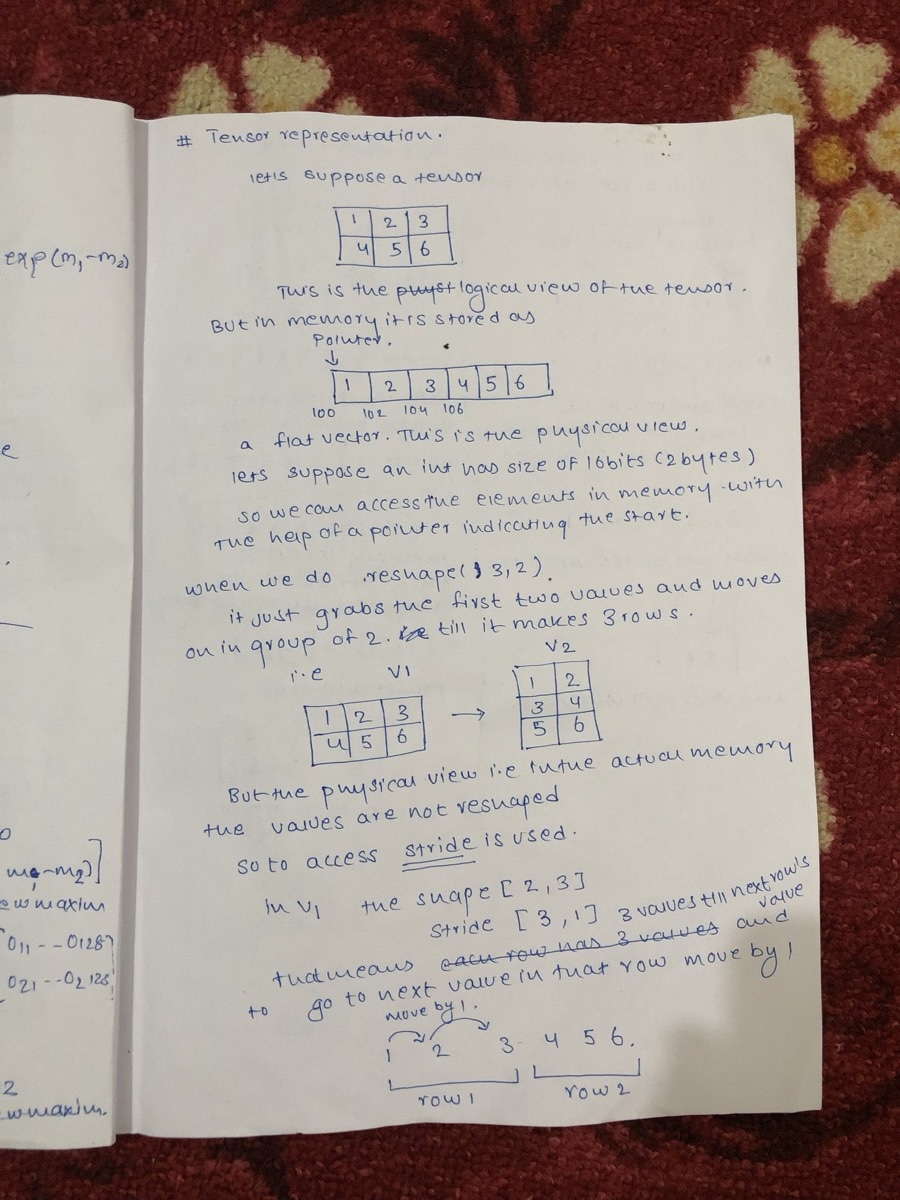 exp(m₁-m₂)
e
m₁-m₂)]
ew maxim
O₁₁ -- O₁₂₈
O₂₁ -- O₂ ₁₂₈
2
ew maxim.
# Tensor representation.
let's suppose a tensor
1 2 3
4 5 6
This is the physt logical view of the tensor.
But in memory it is stored as
Pointer.
1 2 3 4 5 6
100 102 104 106
a flat vector. This is the physical view.
lets suppose an int has size of 16bits (2 bytes)
so we can access the elements in memory with
the help of a pointer indicating the start.
when we do .reshape( 3,2).
it just grabs the first two values and moves
on in group of 2. till it makes 3 rows.
i.e V1 V2
1 2 3 → 1 2
4 5 6 3 4
5 6
But the physical view i.e in the actual memory
the values are not reshaped
so to access stride is used.
In V₁ the shape [2,3]
stride [3,1] 3 values till next row's value
that means each row has 3 values and
to go to next value in that row move by 1
move by 1.
1 2 3 4 5 6.
row 1 row 2